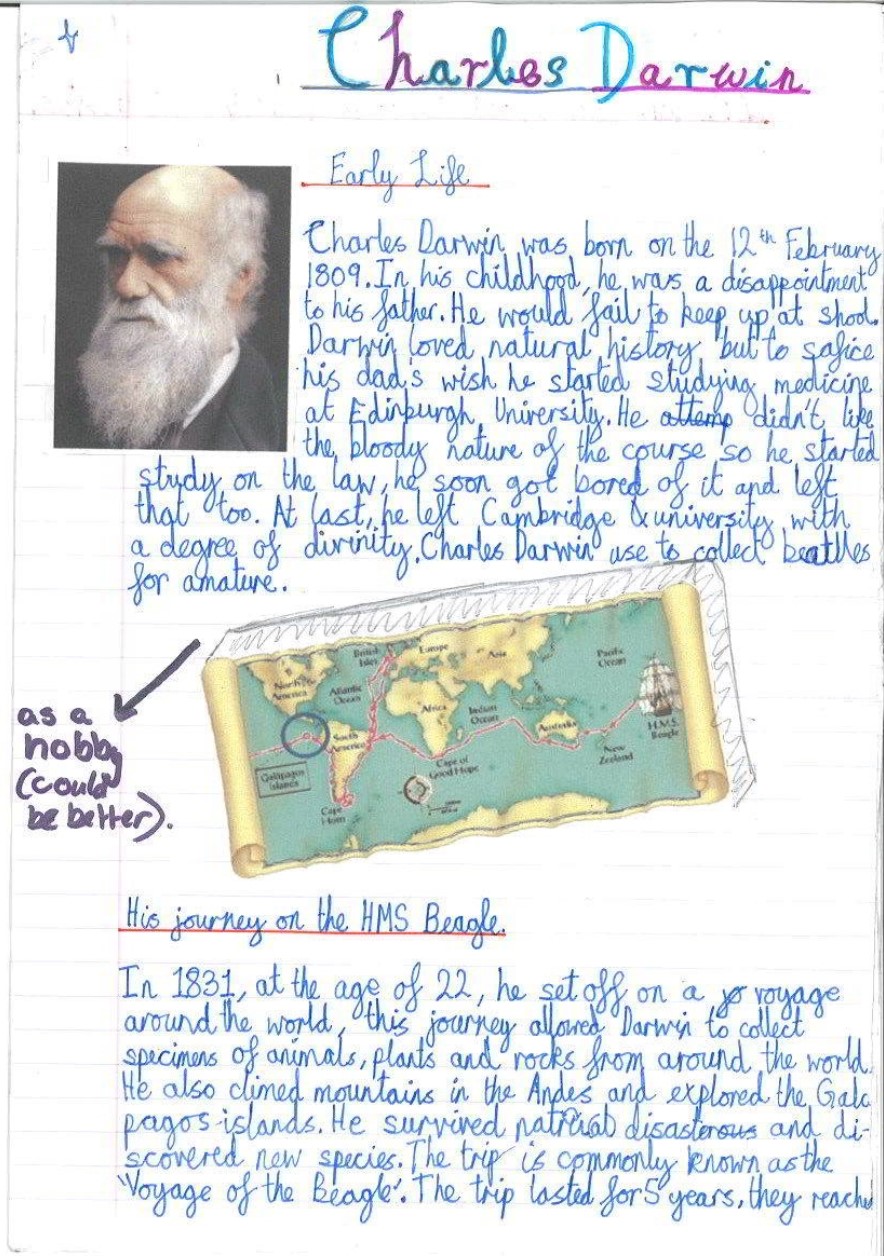 Charles Darwin
Early Life
Charles Darwin was born on the 12th February
1809. In his childhood, he was a disappointment
to his father. He would fail to keep up at shool.
Darwin loved natural history but to safice
his dad's wish he started studying medicine
at Edinburgh University. He attemp didn't like
the bloody nature of the course so he started
study on the law, he soon got bored of it and left
that too. At last, he left Cambridge university with
a degree of divinity. Charles Darwin use to collect beatles
for amature.
as a
hobby
(could
be better).
British
Isles
Europe
Asia
Pacific
Ocean
North
America
Atlantic
Ocean
Africa
Indian
Ocean
South
America
Australia
H.M.S.
Beagle
Galápagos
Islands
Cape of
Good Hope
New
Zealand
Cape
Horn
His journey on the HMS Beagle.
In 1831, at the age of 22, he set off on a yo voyage
around the world, this journey allowed Darwin to collect
specimens of animals, plants and rocks from around the world.
He also climed mountains in the Andes and explored the Gala
pagos islands. He survived natural disasterous and di-
scovered new species. The trip is commonly known as the
'Voyage of the Beagle'. The trip lasted for 5 years, they reached